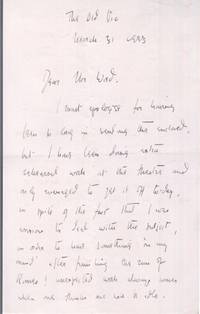 The Old Vic
March 31 1933
Dear Mrs Ward.
I must apologise for having
been so long in sending the enclosed,
but I have been doing extra
rehearsal work at the theatre and
only managed to get it off today,
in spite of the fact that I was
anxious to deal with the subject,
in order to have something in my
mind after finishing the run of
unexpected work always comes
when one